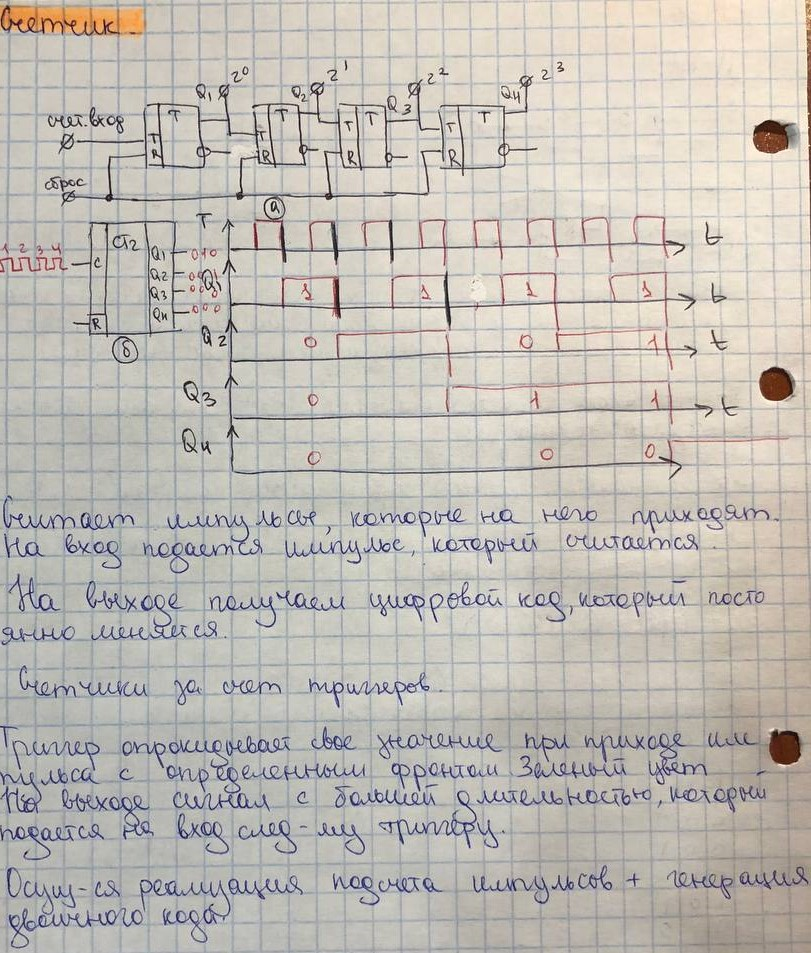 Счетчик.
Q1 2⁰ Q2 2¹ Q3 2² Q4 2³
счет. вход T R T T R T T R T T R T
сброс
а
T t
1 2 3 4 C CT2 Q1 010
Q2
Q3
Q4 000
R
б
Q1 1 1 1 1 t
Q2 0 0 1 t
Q3 0 1 1 t
Q4 0 0 0
Считает импульсы, которые на него приходят.
На вход подается импульс, который считается.
На выходе получаем цифровой код, который посто
янно меняется.
Счетчики за счет триггеров.
Триггер опрокидывает свое значение при приходе им
пульса с определенным фронтом Зеленый цвет
На выходе сигнал с большей длительностью, который
подается на вход след-му триггеру.
Осущ-ся реализация подсчета импульсов + генерация
двоичного кода